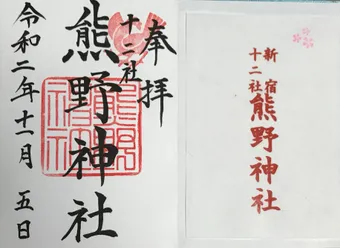 奉拝
十二社
熊野神社
令和二年十一月 五日
熊野神社
新宿
十二社
熊野神社